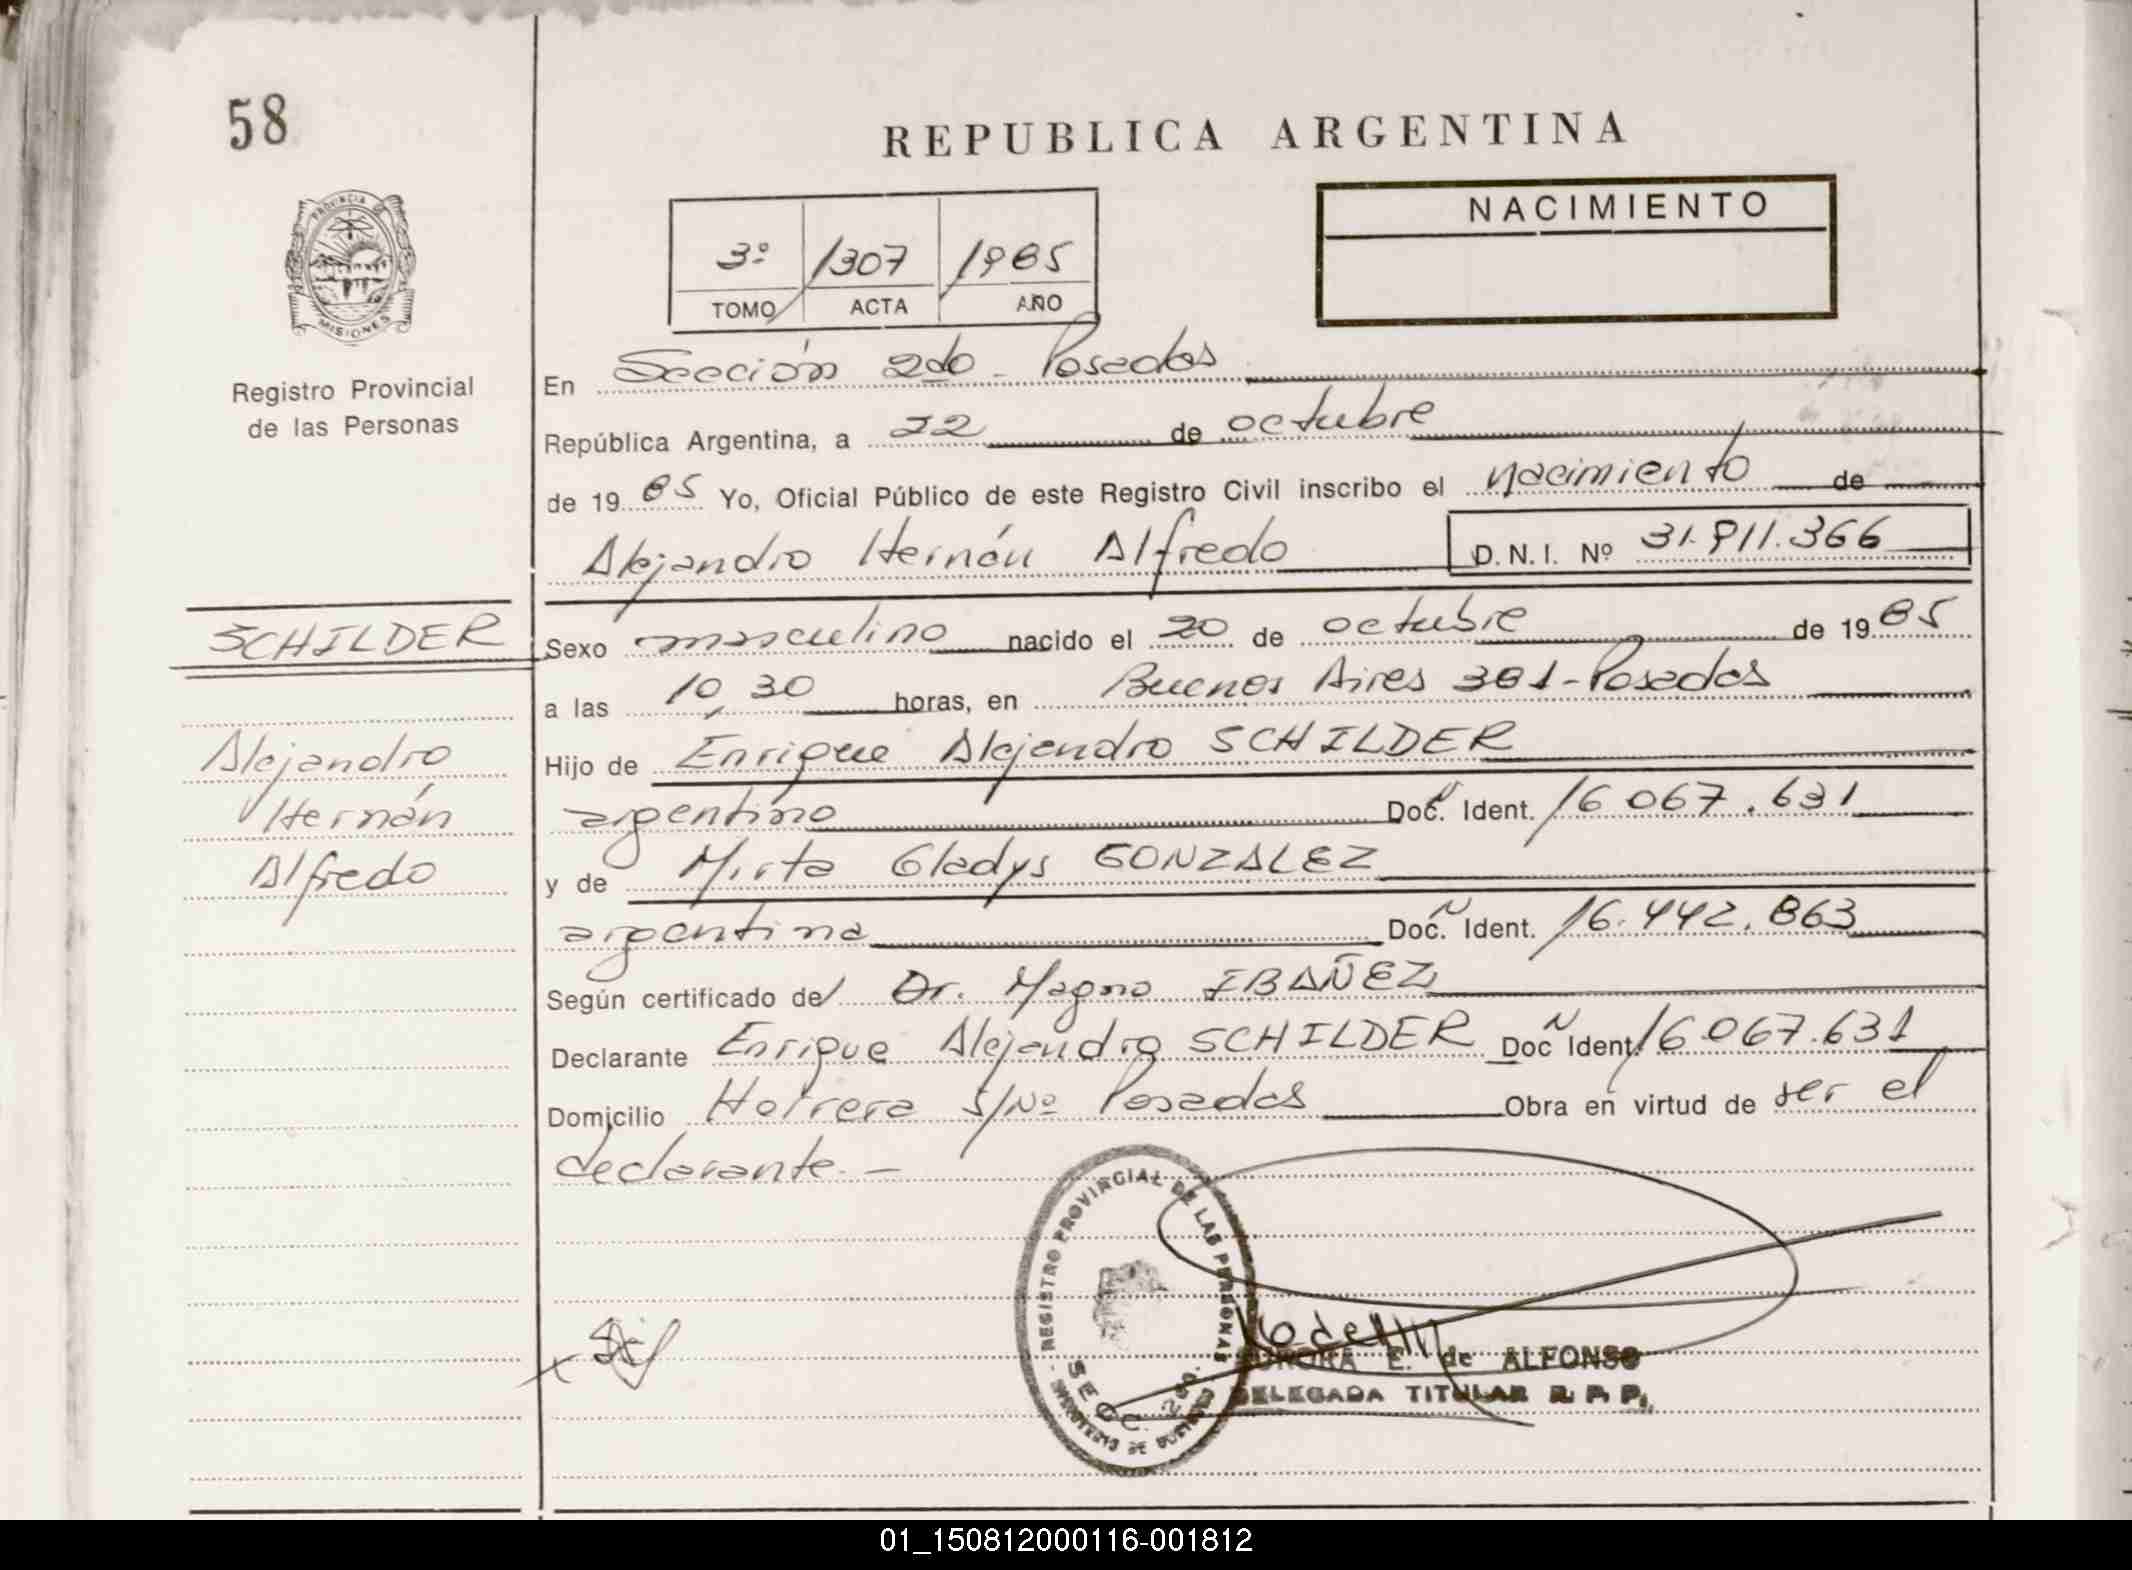 58
REPUBLICA ARGENTINA
PROVINCIA DE
MISIONES
Registro Provincial
de las Personas
NACIMIENTO
3º 1307 1985
TOMO ACTA AÑO
En Sección 2do - Posadas
República Argentina, a 22 de octubre
de 1985 Yo, Oficial Público de este Registro Civil inscribo el nacimiento de
Alejandro Hernán Alfredo D.N.I. Nº 31.911.366
SCHILDER
Sexo masculino nacido el 20 de octubre de 1985
a las 10,30 horas, en Buenos Aires 381 - Posadas
Alejandro
Hernán
Alfredo
Hijo de Enrique Alejandro SCHILDER
argentino Doc. Ident. 16.067.631
y de Mirta Gladys GONZALEZ
argentina Doc. Ident. 16.442.863
Según certificado del Dr. Magno IBAÑEZ
Declarante Enrique Alejandro SCHILDER Doc Ident. 16.067.631
Domicilio Herrera S/Nº Posadas Obra en virtud de ser el
declarante. -
REGISTRO PROVINCIAL DE LAS PERSONAS
SECC. 2da.
MINISTERIO DE GOBIERNO
E. de ALFONSO
DELEGADA TITULAR R. P. P.
01_150812000116-001812